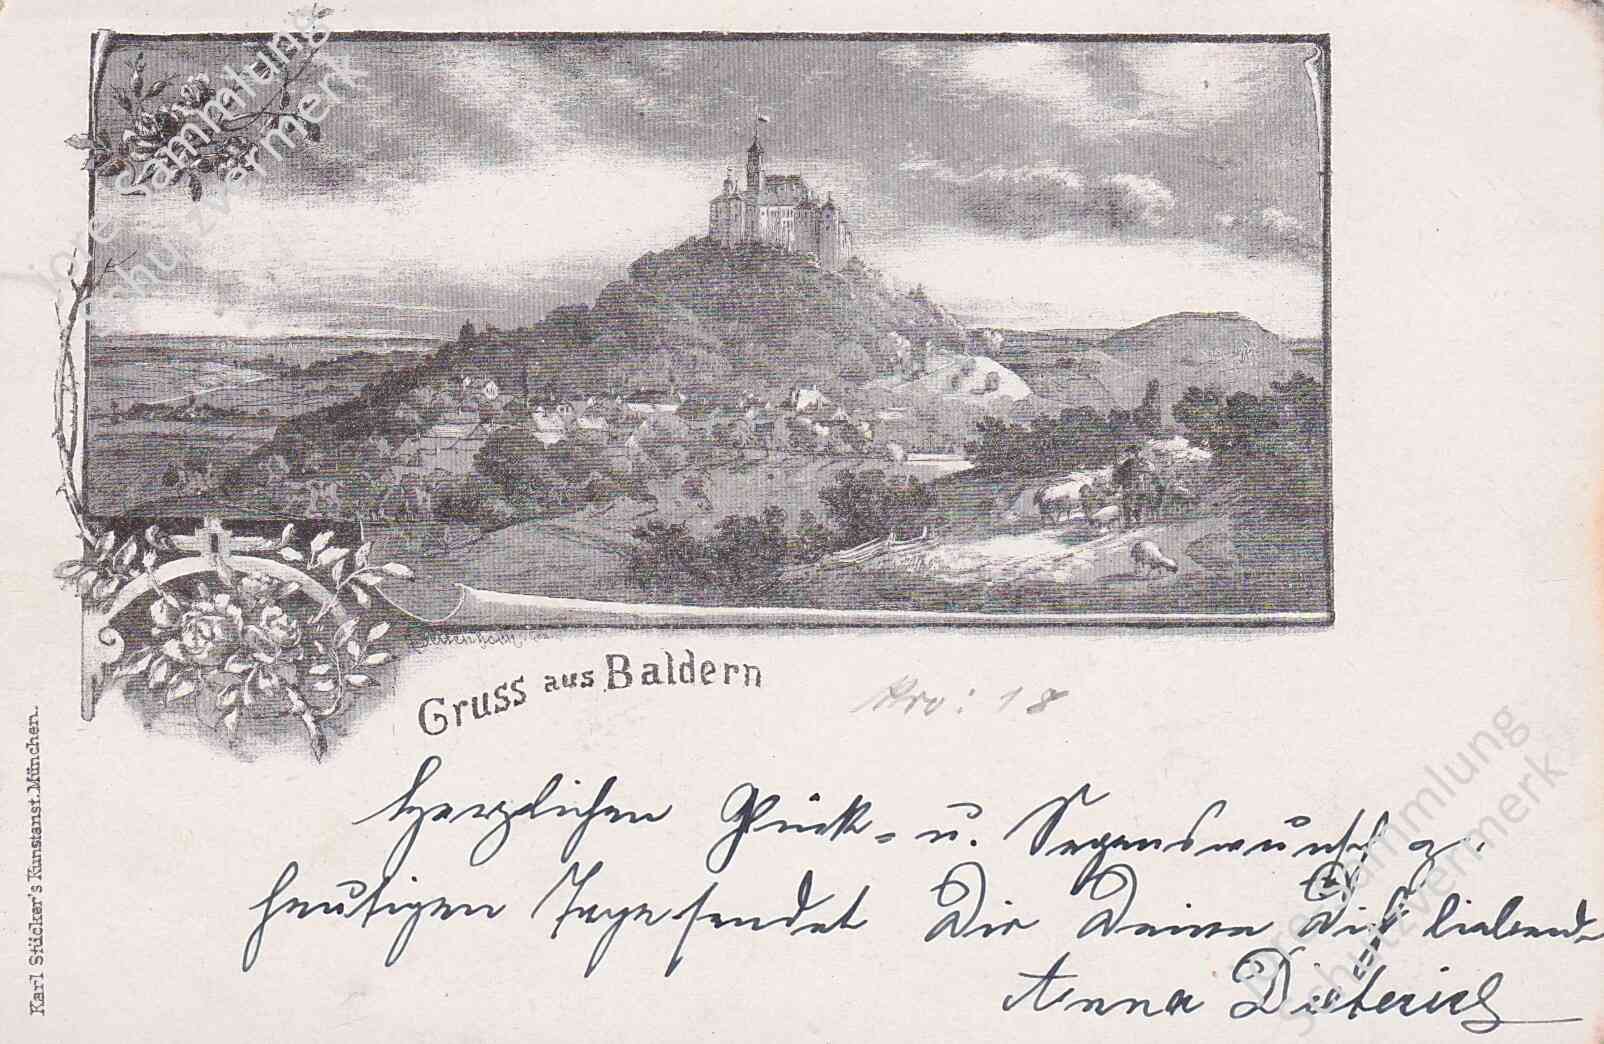 Gruss aus Baldern
Nro: 18
Herzlichen Glück- u. Segenswunsch z.
heutigen Tage sendet Dir Deine Dich liebende
Anna Dieterich
Karl Stücker's Kunstanst. München.
Sammlung
Schutzvermerk
Sammlung
Schutzvermerk